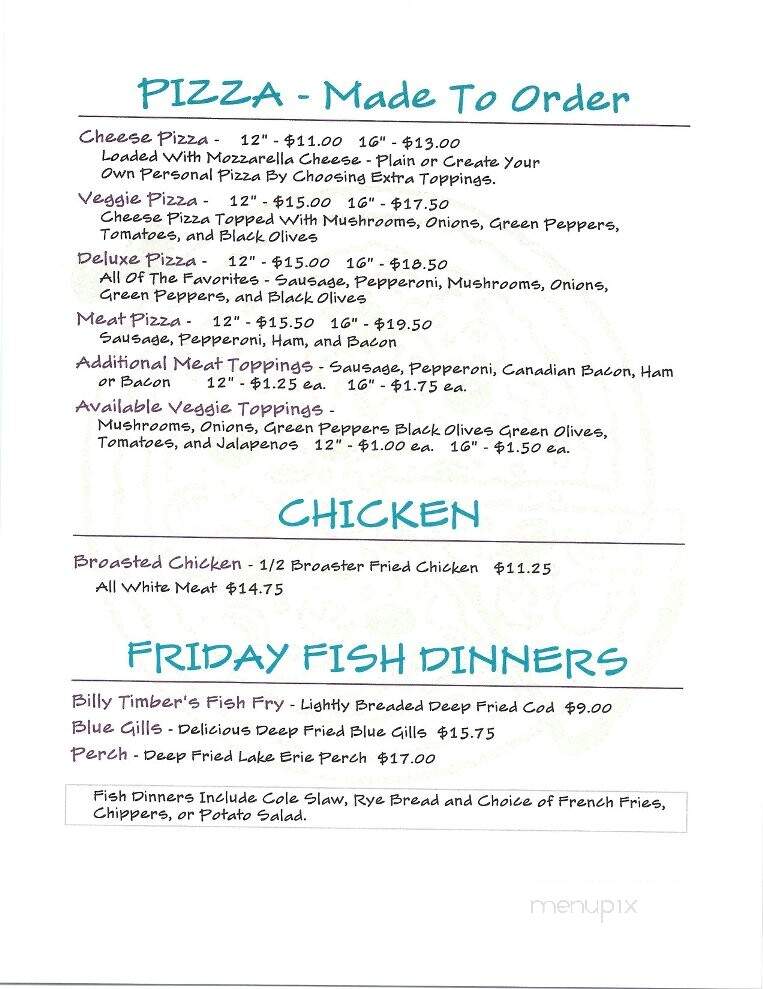 PIZZA - Made To Order
Cheese Pizza - 12" - $11.00 16" - $13.00
Loaded With Mozzarella Cheese - Plain or Create Your
Own Personal Pizza By Choosing Extra Toppings.
Veggie Pizza - 12" - $15.00 16" - $17.50
Cheese Pizza Topped With Mushrooms, Onions, Green Peppers,
Tomatoes, and Black Olives
Deluxe Pizza - 12" - $15.00 16" - $18.50
All Of The Favorites - Sausage, Pepperoni, Mushrooms, Onions,
Green Peppers, and Black Olives
Meat Pizza - 12" - $15.50 16" - $19.50
Sausage, Pepperoni, Ham, and Bacon
Additional Meat Toppings - Sausage, Pepperoni, Canadian Bacon, Ham
or Bacon 12" - $1.25 ea. 16" - $1.75 ea.
Available Veggie Toppings -
Mushrooms, Onions, Green Peppers Black Olives Green Olives,
Tomatoes, and Jalapenos 12" - $1.00 ea. 16" - $1.50 ea.
CHICKEN
Broasted Chicken - 1/2 Broaster Fried Chicken $11.25
All White Meat $14.75
FRIDAY FISH DINNERS
Billy Timber's Fish Fry - Lightly Breaded Deep Fried Cod $9.00
Blue Gills - Delicious Deep Fried Blue Gills $15.75
Perch - Deep Fried Lake Erie Perch $17.00
Fish Dinners Include Cole Slaw, Rye Bread and Choice of French Fries,
Chippers, or Potato Salad.
menupix